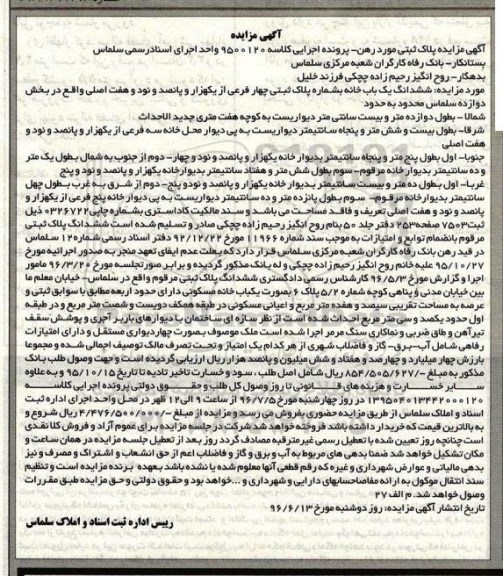 آگهی مزایده
آگهی مزایده پلاک ثبتی مورد رهن- پرونده اجرایی کلاسه ۹۵۰۰۱۲۰ واحد اجرای اسنادرسمی سلماس
بستانکار- بانک رفاه کارگران شعبه مرکزی سلماس
بدهکار- روح انگیز رحیم زاده چچکی فرزند خلیل
مورد مزایده: ششدانگ یک باب خانه بشماره پلاک ثبتی چهار فرعی از یکهزار و پانصد و نود و هفت اصلی واقع در بخش
دوازده سلماس محدود به حدود
شمالا - بطول دوازده متر و بیست سانتی متر دیواریست به کوچه هفت متری جدید الاحداث
شرقا- بطول بیست و شش متر و پنجاه سانتیمتر دیواریست به پی دیوار محل خانه سه فرعی از یکهزار و پانصد و نود و
هفت اصلی
جنوبا- اول بطول پنج متر و پنجاه سانتیمتر بدیوار خانه یکهزار و پانصد و نود و چهار- دوم از جنوب به شمال بطول یک متر
و ده سانتیمتر بدیوار خانه مرقوم- سوم بطول شش متر و هفتاد سانتیمتر بدیوارخانه یکهزار و پانصد و نود و پنج
غربا- اول بطول ده متر و بیست سانتیمتر بدیوار خانه یکهزار و پانصد و نودو پنج- دوم از شرق به غرب بطول چهل
سانتیمتر بدیوارخانه مرقوم- سوم بطول پانزده متر و ده سانتیمتر دیواریست به پی دیوار خانه پنج فرعی از یکهزار و
پانصد و نود و هفت اصلی تعریف و فاقد مساحت می باشد و سند مالکیت کاداستری بشماره چاپی۰۳۲۶۷۲۲ ذیل
ثبت۷۵۰۳ صفحه۲۵۳ دفتر جلد ۵۰ بنام روح انگیز رحیم زاده چچکی صادر و تسلیم شده است ششدانگ پلاک ثبتی
مرقوم بانضمام توابع و امتیازات به موجب سند شماره ۱۱۹۶۶ مورخ ۹۲/۱۲/۲۲ دفتر اسناد رسمی شماره۱۲ سلماس
در قید رهن بانک رفاه کارگران شعبه مرکزی سلماس قرار دارد که بعلت عدم ایفای تعهد منجر به صدور اجرائیه مورخ
۹۵/۱۰/۲۷ علیه خانم روح انگیز رحیم زاده چچکی و له بانک مذکور گردیده و برابر صورتجلسه مورخ ۹۶/۳/۲۰ مامور
اجرا و گزارش مورخ ۹۶/۵/۳ کارشناس رسمی دادگستری ششدانگ پلاک ثبتی مرقوم واقع در سلماس- خیابان معلم ما
بین خیابان مدنی و پناهی کوچه شماره ۵/۲ پلاک ۶ بصورت یکباب خانه مسکونی دارای حدود اربعه مطابق با سوابق ثبتی و
عرصه به مساحت تقریبی سیصد و هفده متر مربع و اعیانی مسکونی در طبقه همکف دویست و شصت متر مربع و در طبقه
اول حدود یکصد و سی متر مربع احداث شده است از نظر سازه ای ساختمان با دیوارهای باربر آجری و پوشش سقف
تیرآهن و طاق ضربی و نماکاری سنگ مرمر اجرا شده است ملک موصوف بصورت چهاردیواری مستقل و دارای امتیازات
رفاهی شامل آب- برق- گاز و فاضلاب شهری از هر کدام یک امتیاز و تحت تصرف مالک توصیف اجمالی شده و مجموعا
بارزش چهار میلیارد و چهارصد و هفتاد و شش میلیون و پانصد هزار ریال ارزیابی گردیده است و جهت وصول طلب بانک
مذکور به مبلغ -/۸۵۴/۵۰۵/۶۲۷ ریال شامل اصل طلب، سود و خسارت تاخیر تادیه تا تاریخ ۹۵/۱۰/۱۵ و به علاوه
سایر خسارت و هزینه های قانونی تا روز وصول کل طلب و حقوق دولتی پرونده اجرایی کلاسه
۱۳۹۵۰۴۰۱۳۴۴۲۰۰۰۱۲۰ در روز چهارشنبه مورخ ۹۶/۷/۵ از ساعت ۹ الی ۱۲ ظهر در محل واحد اجرای اداره ثبت
اسناد و املاک سلماس از طریق مزایده حضوری بفروش می رسد و مزایده از مبلغ -/۴/۴۷۶/۵۰۰/۰۰۰ ریال شروع و
به بالاترین قیمت که خریدار داشته باشد فروخته خواهد شد شرکت در جلسه مزایده برای عموم آزاد و فروش کلا نقدی
است چنانچه روز تعیین شده با تعطیل رسمی غیر مترقبه مصادف گردد روز بعد از تعطیل جلسه مزایده در همان ساعت و
مکان تشکیل خواهد شد ضمنا بدهی های مربوط به آب و برق و گاز و فاضلاب اعم از حق انشعاب و اشتراک و مصرف و نیز
بدهی مالیاتی و عوارض شهرداری و غیره که رقم قطعی آنها معلوم شده یا نشده باشد بعهده برنده مزایده است و تنظیم
سند انتقال موکول به ارائه مفاصاحسابهای دارایی و شهرداری و ...خواهد بود و حقوق دولتی و حق مزایده طبق مقررات
وصول خواهد شد. م الف ۲۷
تاریخ انتشار آگهی مزایده: روز دوشنبه مورخ ۹۶/۶/۱۳
رییس اداره ثبت اسناد و املاک سلماس